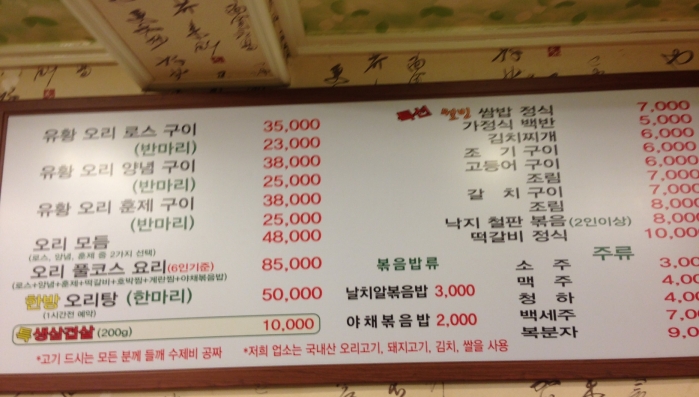 유황 오리 로스 구이 35,000
(반마리) 23,000
유황 오리 양념 구이 38,000
(반마리) 25,000
유황 오리 훈제 구이 38,000
(반마리) 25,000
오리 모듬 48,000
(로스, 양념, 훈제 중 2가지 선택)
오리 풀코스 요리(6인기준) 85,000
(로스+양념+훈제+떡갈비+호박찜+계란찜+야채볶음밥)
한방 오리탕 (한마리) 50,000
(1시간전 예약)
특 생삼겹살 (200g) 10,000
*고기 드시는 모든 분께 들깨 수제비 공짜
쌈밥 정식 7,000
가정식 백반 5,000
김치찌개 6,000
조 기 구이 6,000
고등어 구이 6,000
조림 7,000
갈 치 구이 7,000
조림 8,000
낙지 철판 볶음(2인이상) 8,00
떡갈비 정식 10,00
볶음밥류
날치알볶음밥 3,000
야채볶음밥 2,000
주류
소 주 3,00
맥 주 4,00
청 하 4,00
백세주 7,0
복분자 9,0
*저희 업소는 국내산 오리고기, 돼지고기, 김치, 쌀을 사용